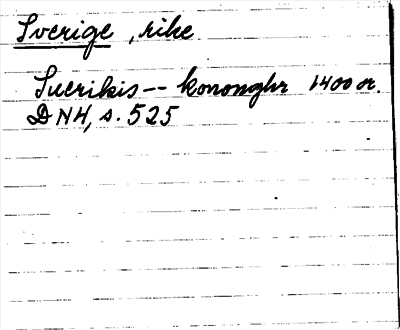 Sverige, rike
Suerikis -- kononghr 1400 or.
DNH, s. 525